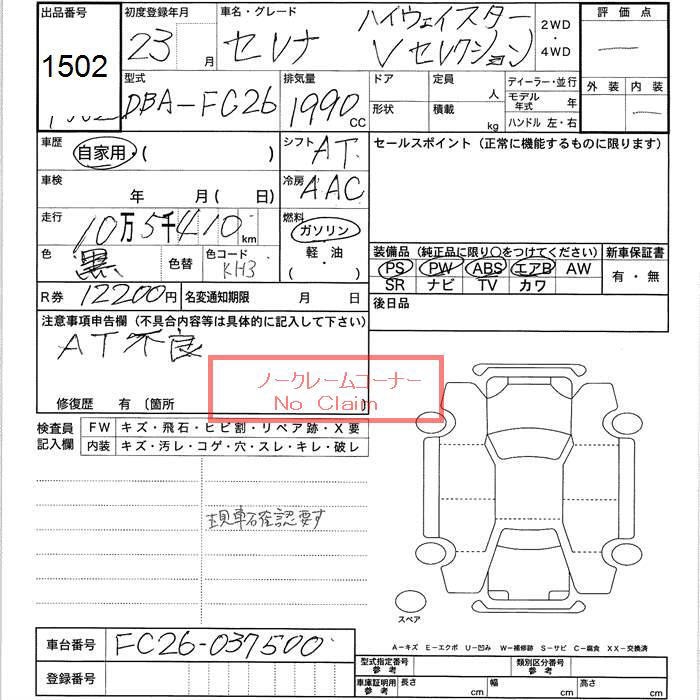 出品番号 初度登録年月 車名・グレード 2WD・4WD 評価点
1502 23月 セレナ ハイウェイスター
Vセレクション
外装 内装
型式 排気量 ドア 定員 人 ディーラー・並行
DBA-FC26 1990cc 形状 積載 kg モデル年式 年
ハンドル 左・右
車歴 自家用・( ) シフト AT セールスポイント (正常に機能するものに限ります)
車検 年 月( 日) 冷房 AAC
走行 10万5千410km 燃料 ガソリン
軽・油
( )
色 黒 色替 色コード KH3
装備品 (純正品に限り○をつけてください) 新車保証書
PS PW ABS エアB AW 有・無
SR ナビ TV カワ
R券 12200円 名変通知期限 月 日 後日品
注意事項申告欄 (不具合内容等は具体的に記入して下さい)
AT不良
ノークレームコーナー
No Claim
修復歴 有 〔箇所
検査員記入欄 FW キズ・飛石・ヒビ割・リペア跡・X要
内装 キズ・汚レ・コゲ・穴・スレ・キレ・破レ
現車確認要す
スペア
A-キズ E-エクボ U-凹み W-補修跡 S-サビ C-腐食 XX-交換済
車台番号 FC26-037500
型式指定番号 参考 類別区分番号 参考
登録番号
車庫証明用 参考 長さ cm 幅 cm 高さ cm